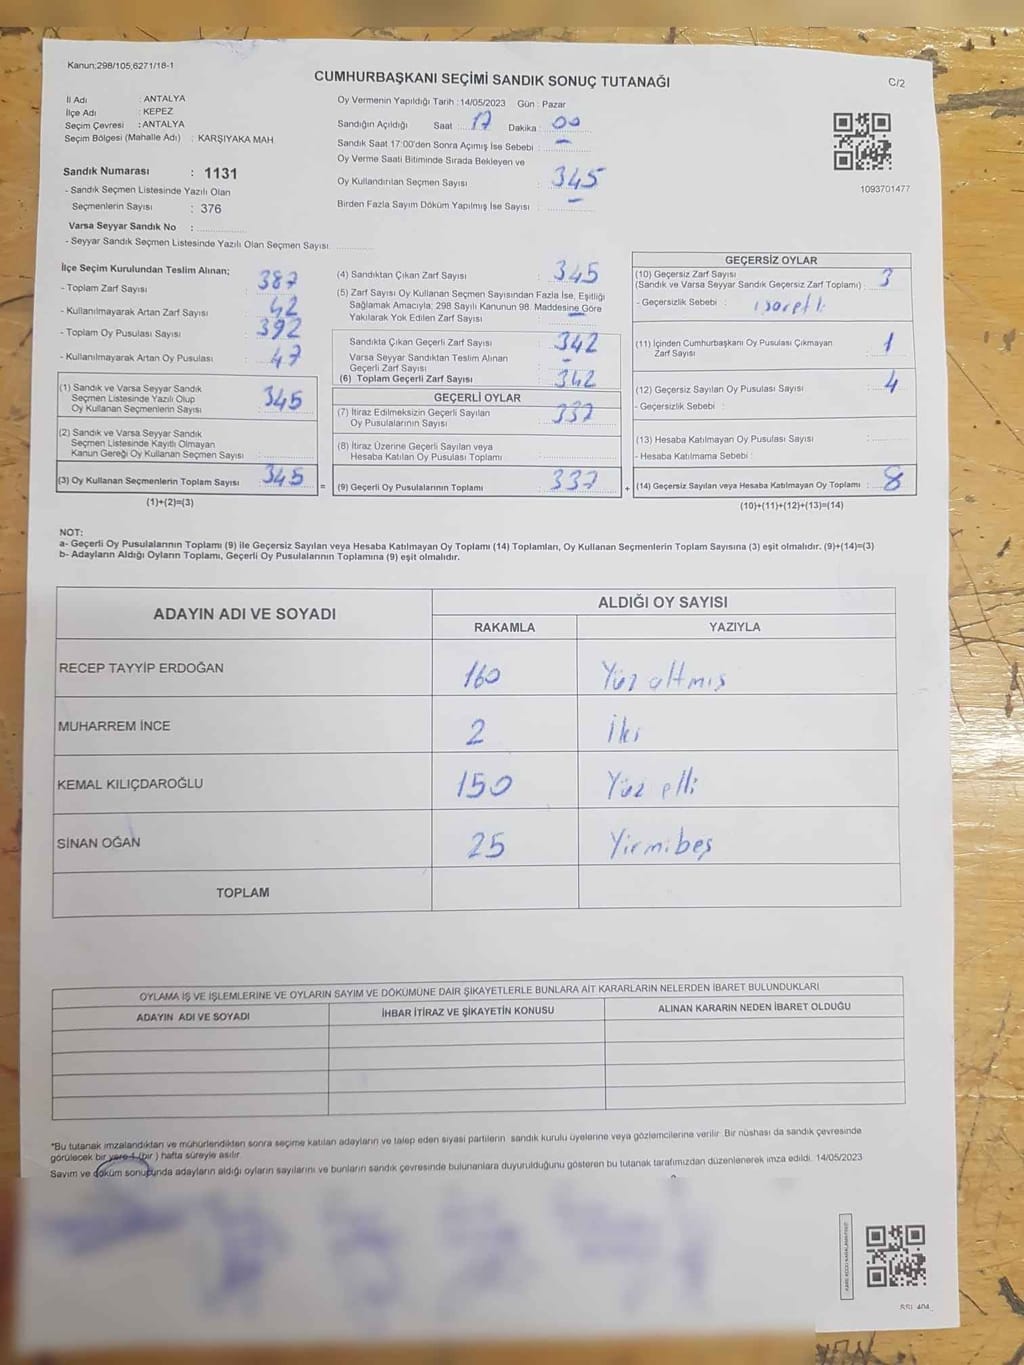 Kanun:298/105,6271/18-1
CUMHURBAŞKANI SEÇİMİ SANDIK SONUÇ TUTANAĞI
C/2
İl Adı : ANTALYA
İlçe Adı : KEPEZ
Seçim Çevresi : ANTALYA
Seçim Bölgesi (Mahalle Adı) : KARŞIYAKA MAH
Oy Vermenin Yapıldığı Tarih :14/05/2023 Gün : Pazar
Sandığın Açıldığı Saat : 17 Dakika : 00
Sandık Saat 17:00'den Sonra Açımış İse Sebebi : -
Oy Verme Saati Bitiminde Sırada Bekleyen ve
Oy Kullandırılan Seçmen Sayısı : 345
Birden Fazla Sayım Döküm Yapılmış İse Sayısı : -
1093701477
Sandık Numarası : 1131
- Sandık Seçmen Listesinde Yazılı Olan
Seçmenlerin Sayısı : 376
Varsa Seyyar Sandık No :
- Seyyar Sandık Seçmen Listesinde Yazılı Olan Seçmen Sayısı
İlçe Seçim Kurulundan Teslim Alınan;
- Toplam Zarf Sayısı : 387
- Kullanılmayarak Artan Zarf Sayısı : 42
- Toplam Oy Pusulası Sayısı : 392
- Kullanılmayarak Artan Oy Pusulası : 47
(1) Sandık ve Varsa Seyyar Sandık
Seçmen Listesinde Yazılı Olup
Oy Kullanan Seçmenlerin Sayısı : 345
(2) Sandık ve Varsa Seyyar Sandık
Seçmen Listesinde Kayıtlı Olmayan
Kanun Gereği Oy Kullanan Seçmen Sayısı :
(3) Oy Kullanan Seçmenlerin Toplam Sayısı : 345 =
(1)+(2)=(3)
(4) Sandıktan Çıkan Zarf Sayısı : 345
(5) Zarf Sayısı Oy Kullanan Seçmen Sayısından Fazla İse, Eşitliği
Sağlamak Amacıyla; 298 Sayılı Kanunun 98. Maddesine Göre
Yakılarak Yok Edilen Zarf Sayısı : -
Sandıkta Çıkan Geçerli Zarf Sayısı : 342
Varsa Seyyar Sandıktan Teslim Alınan
Geçerli Zarf Sayısı : -
(6) Toplam Geçerli Zarf Sayısı : 342
GEÇERLİ OYLAR
(7) İtiraz Edilmeksizin Geçerli Sayılan
Oy Pusulalarının Sayısı : 337
(8) İtiraz Üzerine Geçerli Sayılan veya
Hesaba Katılan Oy Pusulası Toplamı :
(9) Geçerli Oy Pusulalarının Toplamı : 337 +
GEÇERSİZ OYLAR
(10) Geçersiz Zarf Sayısı
(Sandık ve Varsa Seyyar Sandık Geçersiz Zarf Toplamı) : 3
- Geçersizlik Sebebi : işaretli
(11) İçinden Cumhurbaşkanı Oy Pusulası Çıkmayan
Zarf Sayısı : 1
(12) Geçersiz Sayılan Oy Pusulası Sayısı : 4
- Geçersizlik Sebebi :
(13) Hesaba Katılmayan Oy Pusulası Sayısı :
- Hesaba Katılmama Sebebi :
(14) Geçersiz Sayılan veya Hesaba Katılmayan Oy Toplamı : 8
(10)+(11)+(12)+(13)=(14)
NOT:
a- Geçerli Oy Pusulalarının Toplamı (9) ile Geçersiz Sayılan veya Hesaba Katılmayan Oy Toplamı (14) Toplamları, Oy Kullanan Seçmenlerin Toplam Sayısına (3) eşit olmalıdır. (9)+(14)=(3)
b- Adayların Aldığı Oyların Toplamı, Geçerli Oy Pusulalarının Toplamına (9) eşit olmalıdır.
ADAYIN ADI VE SOYADI
ALDIĞI OY SAYISI
RAKAMLA YAZIYLA
RECEP TAYYİP ERDOĞAN 160 Yüz altmış
MUHARREM İNCE 2 İki
KEMAL KILIÇDAROĞLU 150 Yüz elli
SİNAN OĞAN 25 Yirmibeş
TOPLAM
OYLAMA İŞ VE İŞLEMLERİNE VE OYLARIN SAYIM VE DÖKÜMÜNE DAİR ŞİKAYETLERLE BUNLARA AİT KARARLARIN NELERDEN İBARET BULUNDUKLARI
ADAYIN ADI VE SOYADI İHBAR İTİRAZ VE ŞİKAYETİN KONUSU ALINAN KARARIN NEDEN İBARET OLDUĞU
*Bu tutanak imzalandıktan ve mühürlendikten sonra seçime katılan adayların ve talep eden siyasi partilerin sandık kurulu üyelerine veya gözlemcilerine verilir. Bir nüshası da sandık çevresinde
görülecek bir yere 1 (bir ) hafta süreyle asılır.
Sayım ve döküm sonucunda adayların aldığı oyların sayılarını ve bunların sandık çevresinde bulunanlara duyurulduğunu gösteren bu tutanak tarafımızdan düzenlenerek imza edildi. 14/05/2023